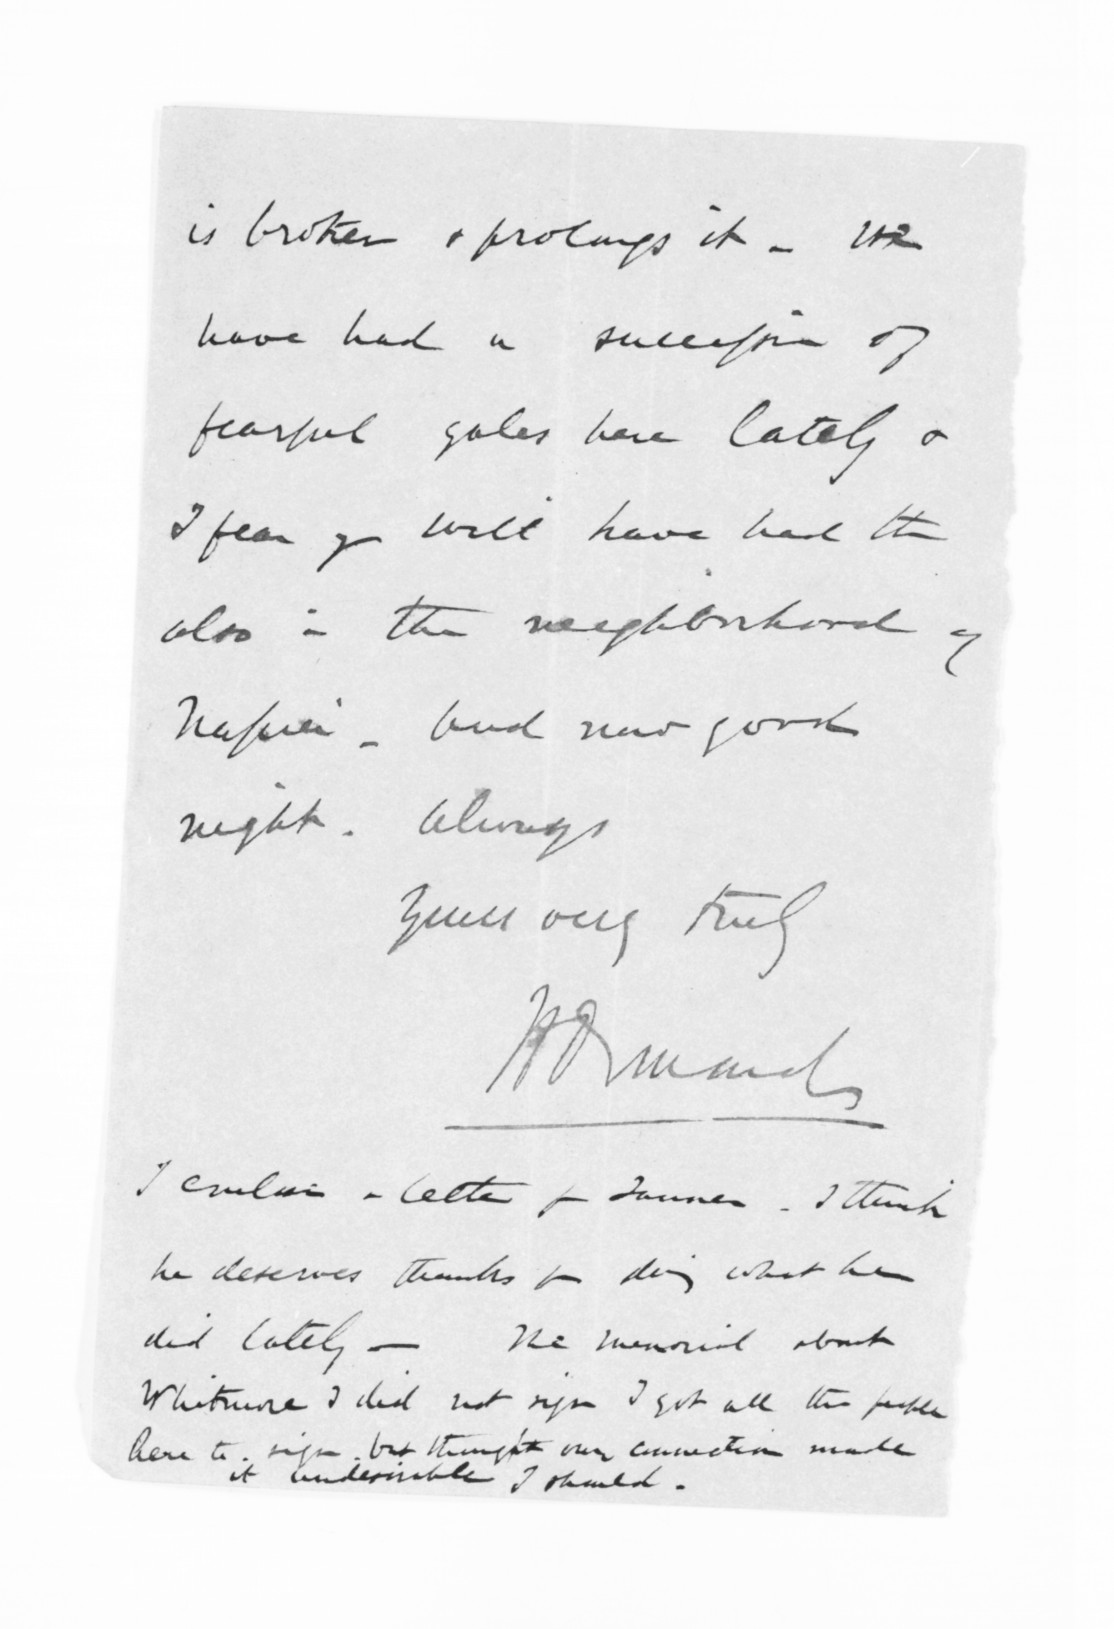 is broken & prolongs it - We
have had a succession of
fearful gales here lately &
I fear yr will have had the
also in the neighborhood of
Napier - And now good
night. Always
Yours very truly
J D Ormond
I enclose a letter fr Tanner - I think
he deserves thanks for doing what he
did lately - The memorial about
Whitmore I did not sign I got all the people
here to sign but thought our connection made
it undesirable I should.